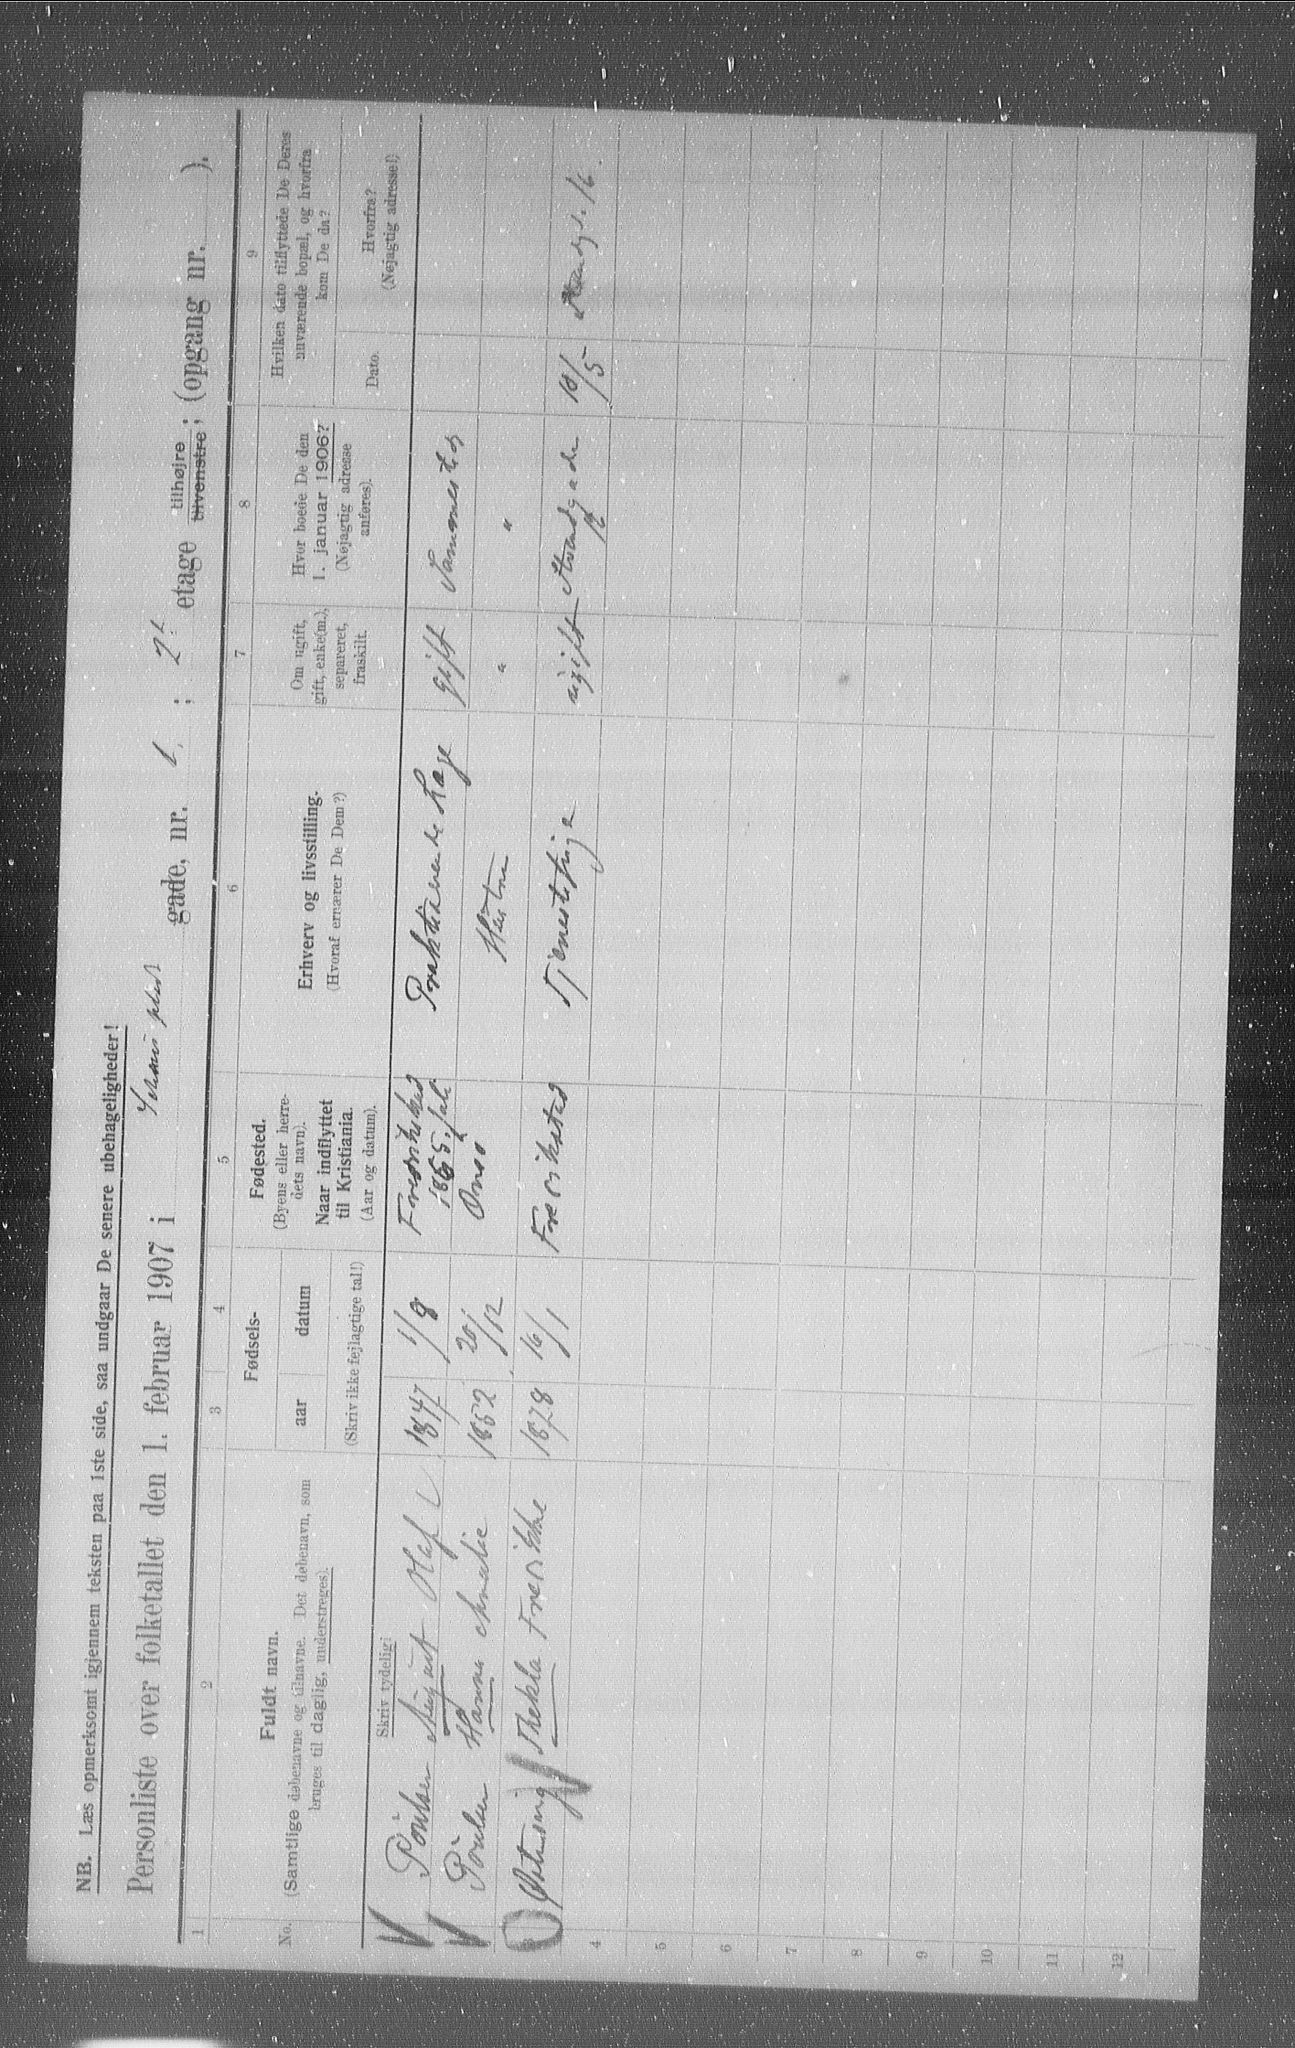 NB. Læs opmerksomt igjennem teksten paa 1ste side, saa undgaar De senere ubehageligheder!
Personliste over folketallet den 1. februar 1907 i Schous plads gade, nr. 1 ; 2 etage tilhøjre tilvenstre ; (opgang nr. ).
1 2 3 4 5 6 7 8 9
No.
Fuldt navn.
(Samtlige døbenavne og tilnavne. Det døbenavn, som
bruges til daglig, understreges).
Skriv tydelig!
Fødsels-
aar
datum
(Skriv ikke fejlagtige tal!)
Fødested.
(Byens eller herre-
dets navn).
Naar indflyttet
til Kristiania.
(Aar og datum).
Erhverv og livsstilling.
(Hvoraf ernærer De Dem?)
Om ugift,
gift, enke(m.),
separeret,
fraskilt.
Hvor boede De den
1. januar 1906?
(Nøjagtig adresse
anføres).
Hvilken dato tilflyttede De Deres
nuværende bopæl, og hvorfra
kom De da?
Dato.
Hvorfra?
(Nøjagtig adresse!)
Poulsen August Olaf 1847 1/8 Fredrikshald 1865. Praktiserende Læge gift Sammested
Poulsen Hanna Amalie 1852 20/12 Onsø Hustru " "
3 Thekla Fredrikke 1878 16/1 Fredrikstad Tjenestepige ugift Strandgade 16 10/5 16.
4
5
6
7
8
9
10
11
12